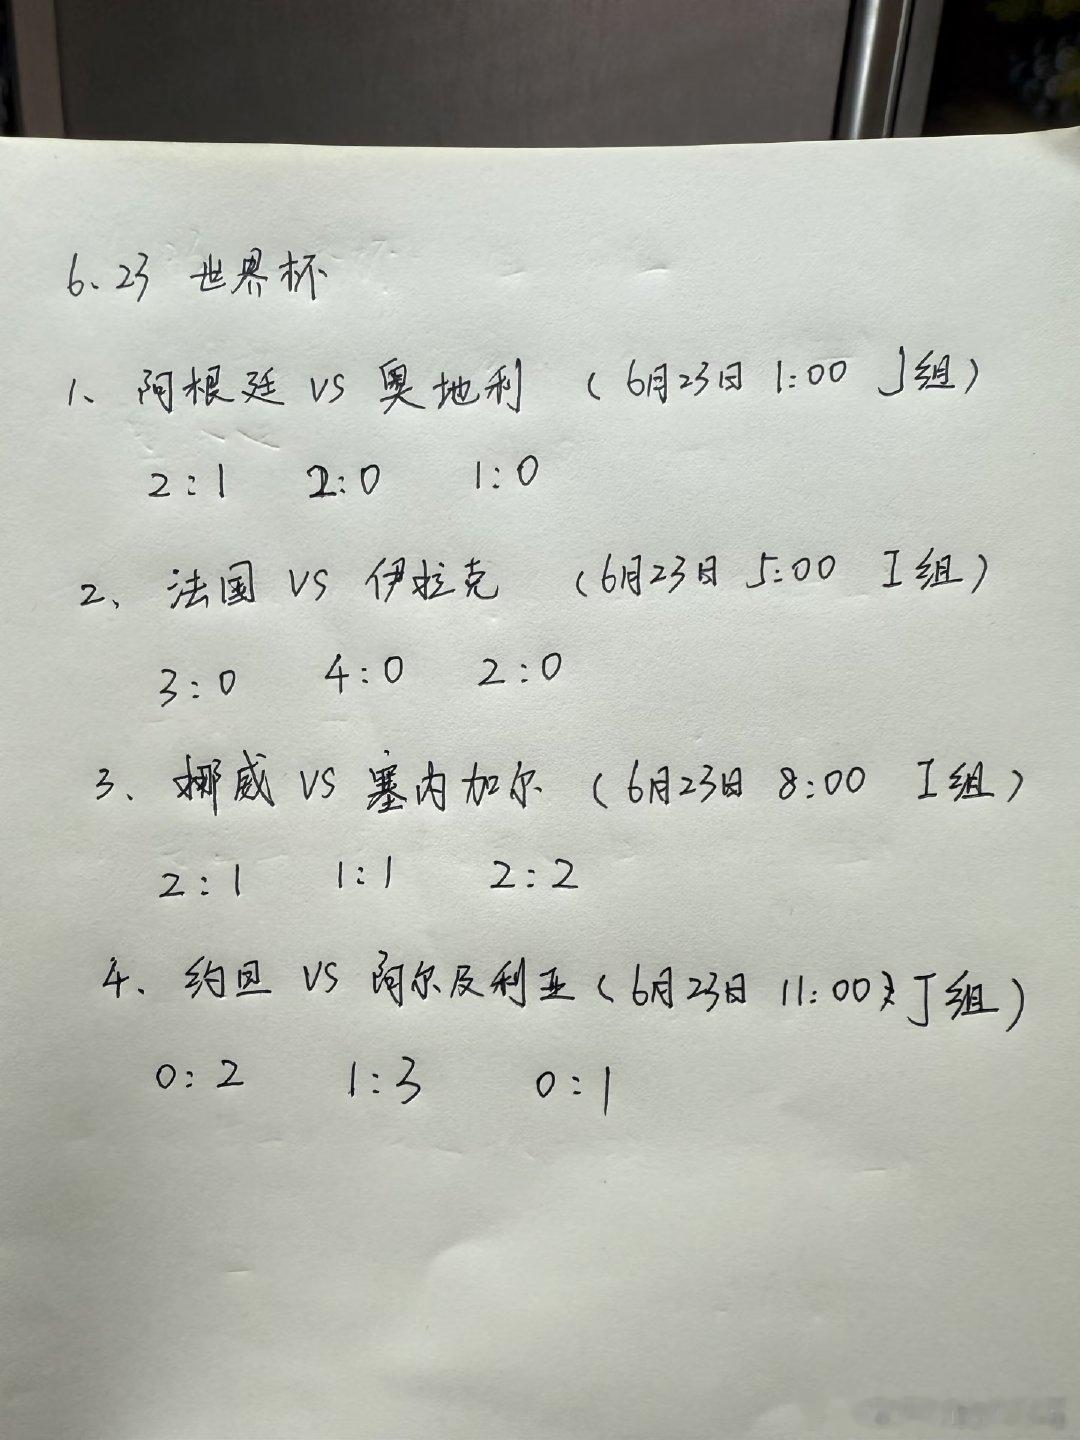 6、23 世界杯
1、阿根廷 VS 奥地利 (6月23日 1:00 J组)
2:1 2:0 1:0
2、法国 VS 伊拉克 (6月23日 5:00 I组)
3:0 4:0 2:0
3、挪威 VS 塞内加尔 (6月23日 8:00 I组)
2:1 1:1 2:2
4、约旦 VS 阿尔及利亚 (6月23日 11:00 J组)
0:2 1:3 0:1